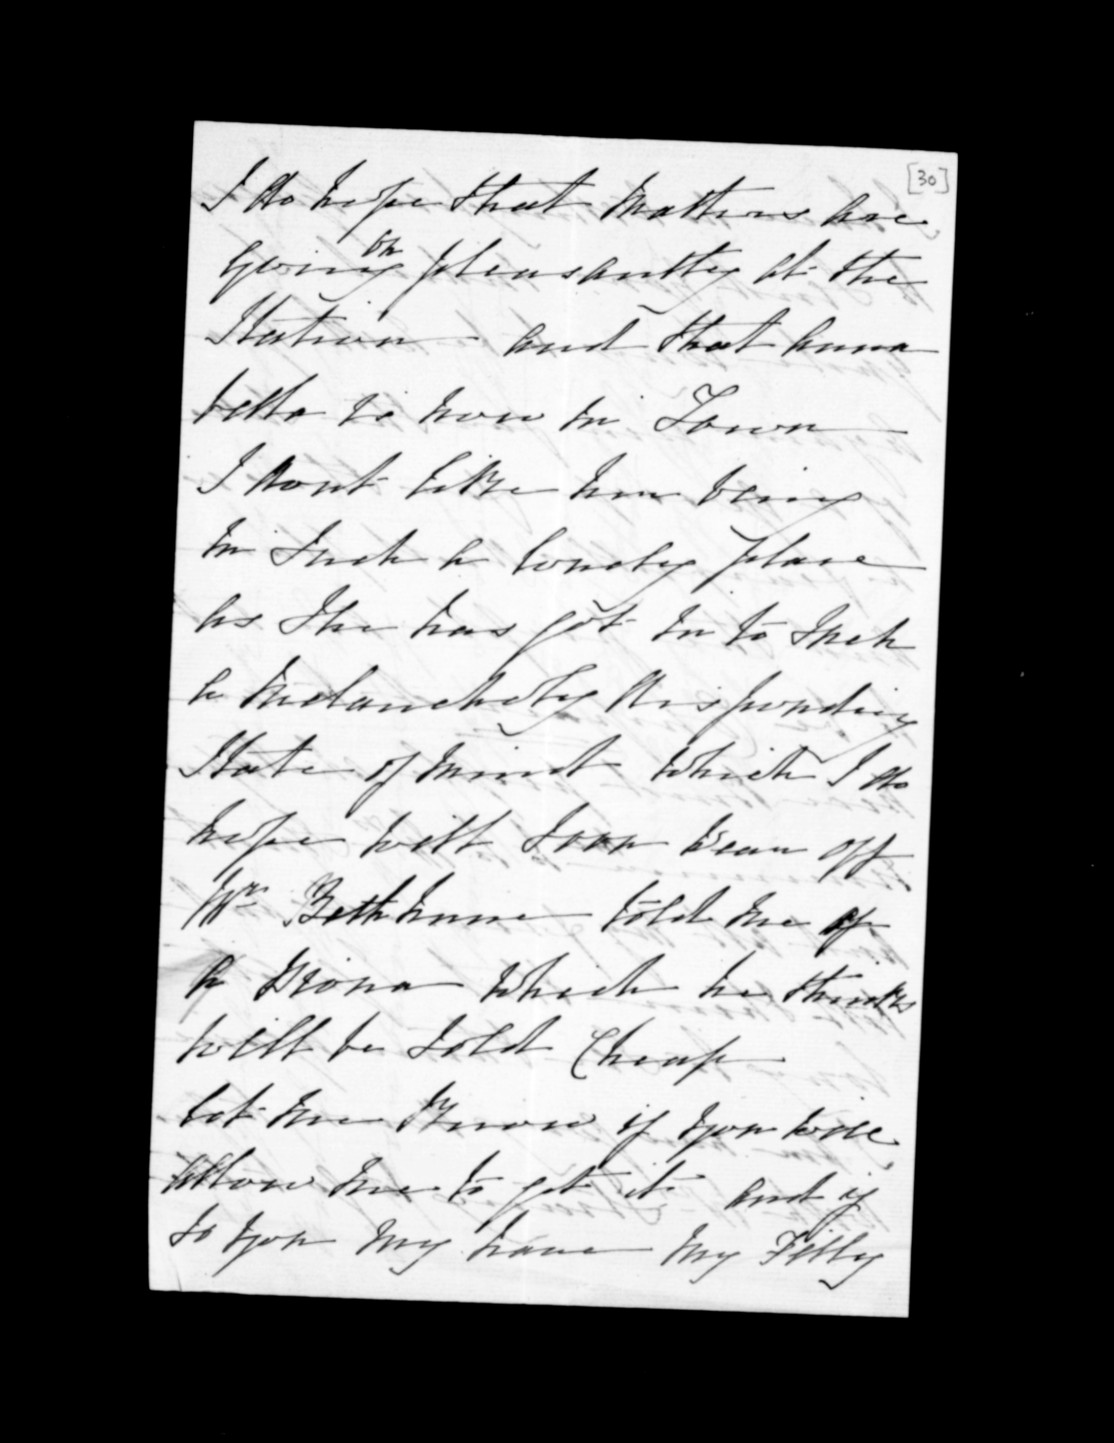 [30]
I do hope that matters are
going on pleasantly at the
Station - and that Anna
bella is now in Town
I dont like her being
in Such a lonely place
as She has got in to Such
a melancholy disponding
State of mind which I do
hope will Soon wear off
Mr Bethune told me of
a Piona which he thinks
will be Sold Cheap
let me Know if you will
allow me to get it and if
So you my have my Filly